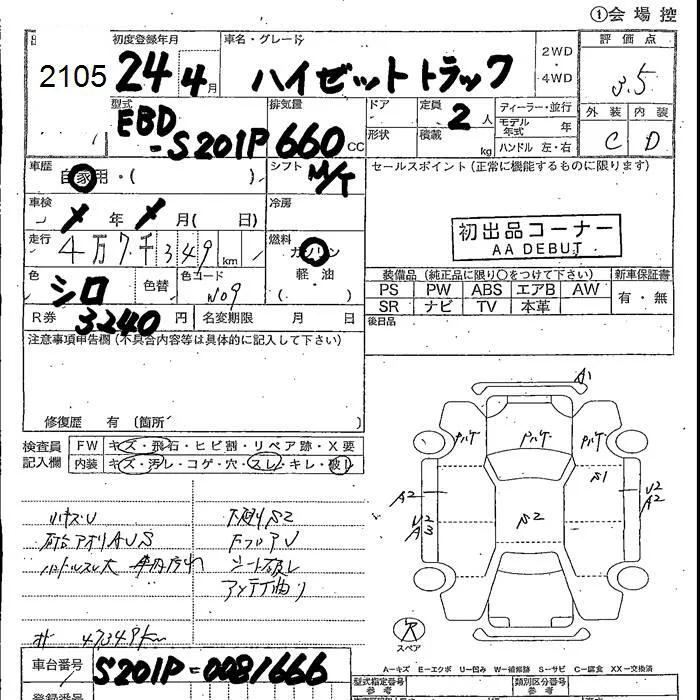 ①会場控
初度登録年月
車名・グレード
2WD
・
4WD
評価点
2105
24年4月
ハイゼットトラック
3.5
型式
EBD
-S201P
排気量
660cc
ドア
定員
2人
ディーラー・並行
モデル年式 年
外装 内装
C D
形状
積載
kg
ハンドル 左・右
車歴
自家用・( )
シフト
M/T
セールスポイント(正常に機能するものに限ります)
車検
年 月( 日)
冷房
初出品コーナー
AA DEBUT
走行
4万7千349km
燃料
ガソリン
軽・油
( )
色
シロ
色替
色コード
W09
装備品(純正品に限り○をつけて下さい)
新車保証書
PS PW ABS エアB AW
有・無
SR ナビ TV 本革
R券
3240円
名変期限 月 日
後日品
注意事項申告欄(不具合内容等は具体的に記入して下さい)
修復歴 有 (箇所 )
A1
検査員
記入欄
FW キズ・飛石・ヒビ割・リペア跡・X要
内装 キズ・汚レ・コゲ・穴・スレ・キレ・破レ
S1
A2
S2
U2
A3
U2
A2
下廻りS2
荷台アオリAUS
シート破レ
アンテナ曲り
47349km
スペア
A…キズ E…エクボ U…凹み W…補修跡 S…サビ C…腐食 XX…交換済
車台番号
S201P-0081666
型式指定番号
参考
類別区分番号
参考
登録番号